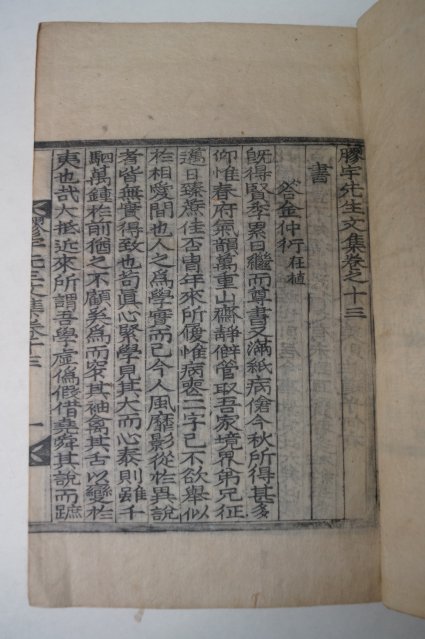 膠宇先生文集卷之十三
書
答金仲衍在植
旣得賢季累日繼而尊書又滿紙病傖今秋所得甚多
仰惟春府氣韻萬重山齋靜僻管取吾家境界弟兄征
邁日臻蔗佳否冑年來所優惟病喪二字已不欲舉似
於相愛間也人之爲學實而已今人風靡影從於異說
者皆無實得致也苟眞心緊學見其大而心泰則雖千
駟萬鍾於前猶之不顧奚爲而穷其袖禽其舌以變於
夷也哉大抵近來所謂吾學虛僞假借堯舜其說而蹠
膠宇先生文集卷十三
一